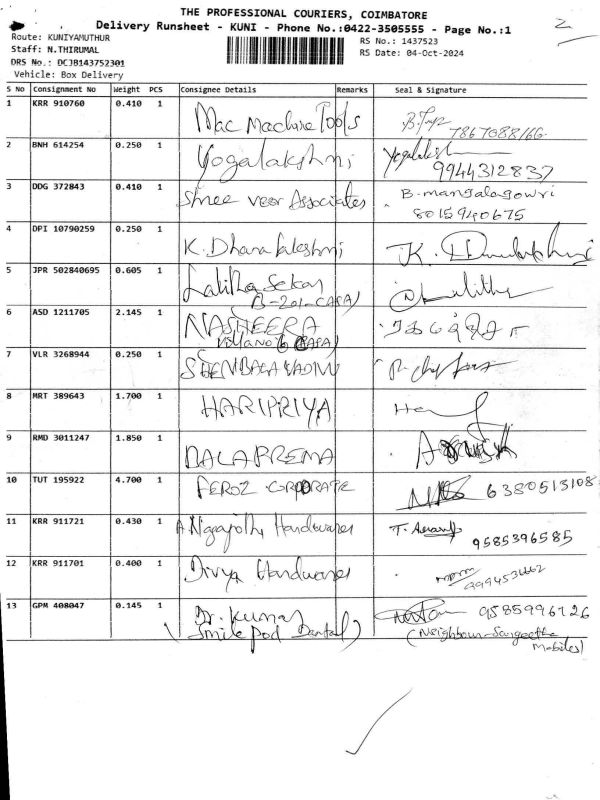 THE PROFESSIONAL COURIERS, COIMBATORE
Delivery Runsheet - KUNI - Phone No.:0422-3505555 - Page No.:1
2
Route: KUNIYAMUTHUR
RS No.: 1437523
Staff: N.THIRUMAL
RS Date: 04-Oct-2024
DRS No.: DCJB143752301
Vehicle: Box Delivery
S No Consignment No Weight PCS Consignee Details Remarks Seal & Signature
1 KRR 910760 0.410 1 Mac Machine Tools
7867088166
2 BNH 614254 0.250 1 Yogalakshmi Yogalaksh
9944312837
3 DDG 372843 0.410 1 Shree veer Associates B. mangalagowri
8015940675
4 DPI 10790259 0.250 1 K. Dhanalakshmi K.
5 JPR 502840695 0.605 1 Lalitha Sekar Lalitha
B-201-(APA)
6 ASD 1211705 2.145 1 NASHEERA
7 VLR 3268944 0.250 1 SHENBAGAVADIVU
8 MRT 389643 1.700 1 HARIPRIYA
9 RMD 3011247 1.850 1 BALAPREMA
10 TUT 195922 4.700 1 FEROZ CORPORATE 6380513108
11 KRR 911721 0.430 1 Hardwares T.
9585396585
12 KRR 911701 0.400 1 Divya Hardwares
13 GPM 408047 0.145 1 Dr. Kumar 9585996726
(Smile Pod Dental) (Neighbour-Sangeetha
Mobiles)